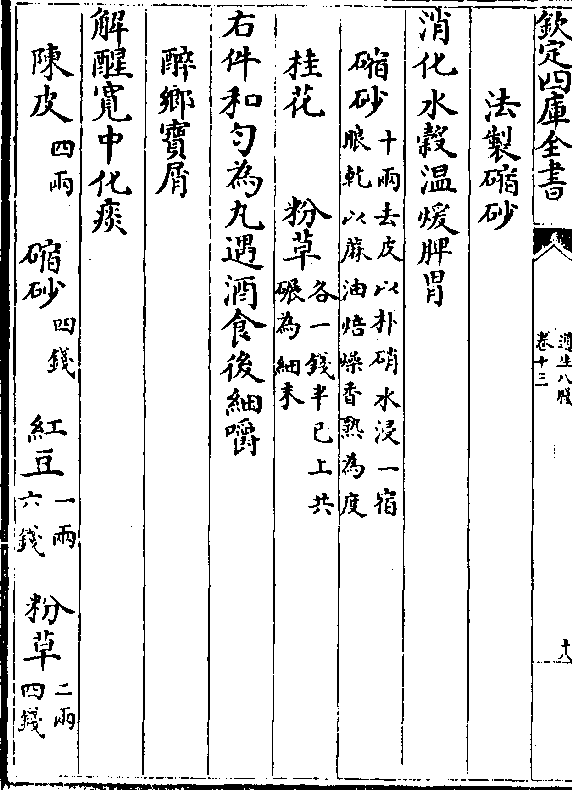 欽定四庫全書
遵生八牋
卷十三
十八
法製縮砂
消化水穀溫煖脾胃
縮砂十兩去皮以朴硝水浸一宿
晾乾以蔴油焙燥香熟為度
桂花 粉草各一錢半已上共
碾為細末
右件和勻為丸遇酒食後細嚼
醉鄉寶屑
解醒寬中化痰
陳皮四兩 縮砂四錢 紅豆一兩六錢 粉草二兩四錢